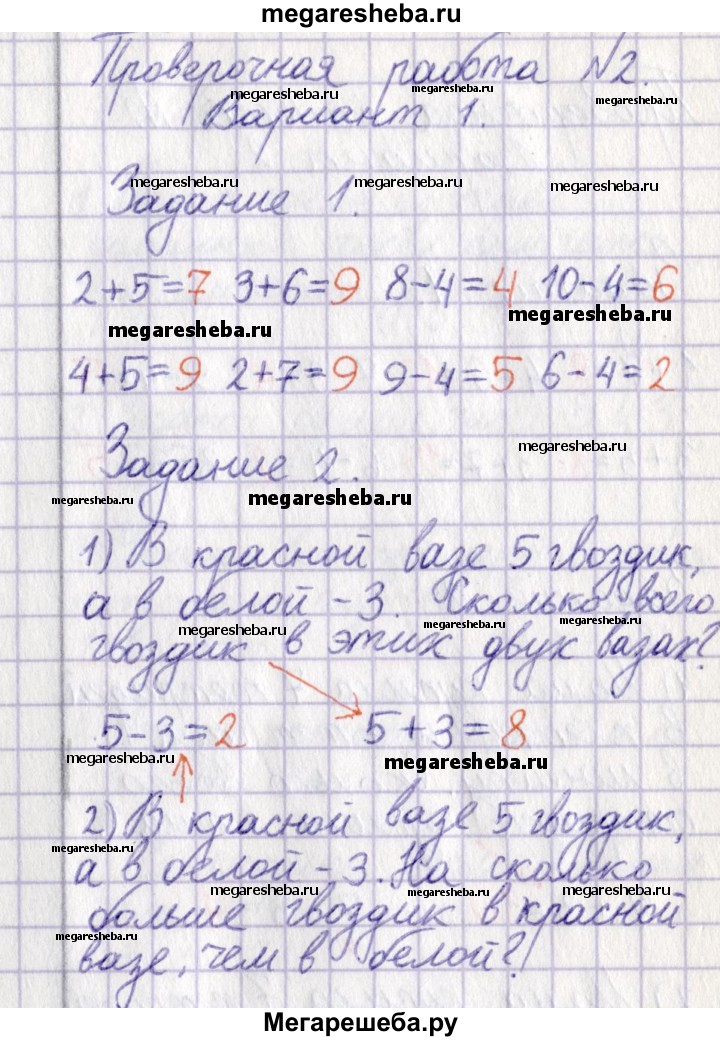 megaresheba.ru
Проверочная работа №2.
megaresheba.ru megaresheba.ru megaresheba.ru
Вариант 1.
megaresheba.ru megaresheba.ru megaresheba.ru
Задание 1.
2+5=7 3+6=9 8-4=4 10-4=6
megaresheba.ru megaresheba.ru
4+5=9 2+7=9 9-4=5 6-4=2
Задание 2.
megaresheba.ru
megaresheba.ru megaresheba.ru
1) В красной вазе 5 гвоздик,
а в белой - 3. Сколько всего
megaresheba.ru megaresheba.ru
гвоздик в этих двух вазах?
5-3=2 5+3=8
megaresheba.ru megaresheba.ru
2) В красной вазе 5 гвоздик,
megaresheba.ru
а в белой - 3. На сколько
megaresheba.ru megaresheba.ru megaresheba.ru
больше гвоздик в красной
megaresheba.ru
вазе, чем в белой?
Мегарешеба.ру